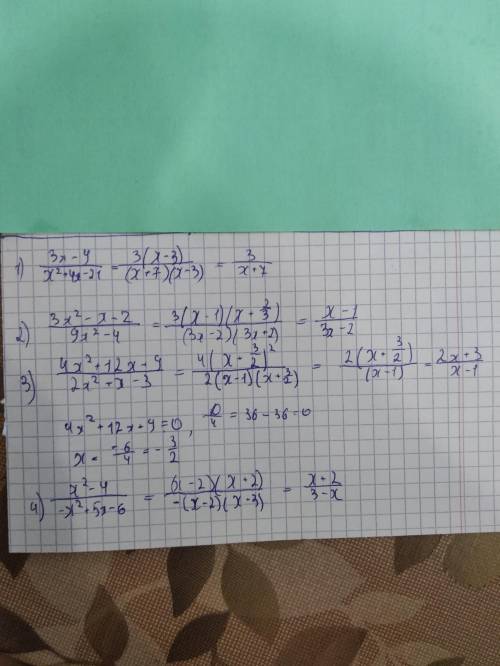 1) (3x-9)/(x²+4x-21) = 3(x-3)/((x+7)(x-3)) = 3/(x+7)
2) (3x²-x-2)/(9x²-4) = 3(x-1)(x+2/3)/((3x-2)(3x+2)) = (x-1)/(3x-2)
3) (4x²+12x+9)/(2x²+x-3) = 4(x+3/2)²/(2(x-1)(x+3/2)) = 2(x+3/2)/(x-1) = (2x+3)/(x-1)
4x²+12x+9=0, D/4=36-36=0
x=-6/4=-3/2
4) (x²-4)/(-x²+5x-6) = (x-2)(x+2)/(-(x-2)(x-3)) = (x+2)/(3-x)